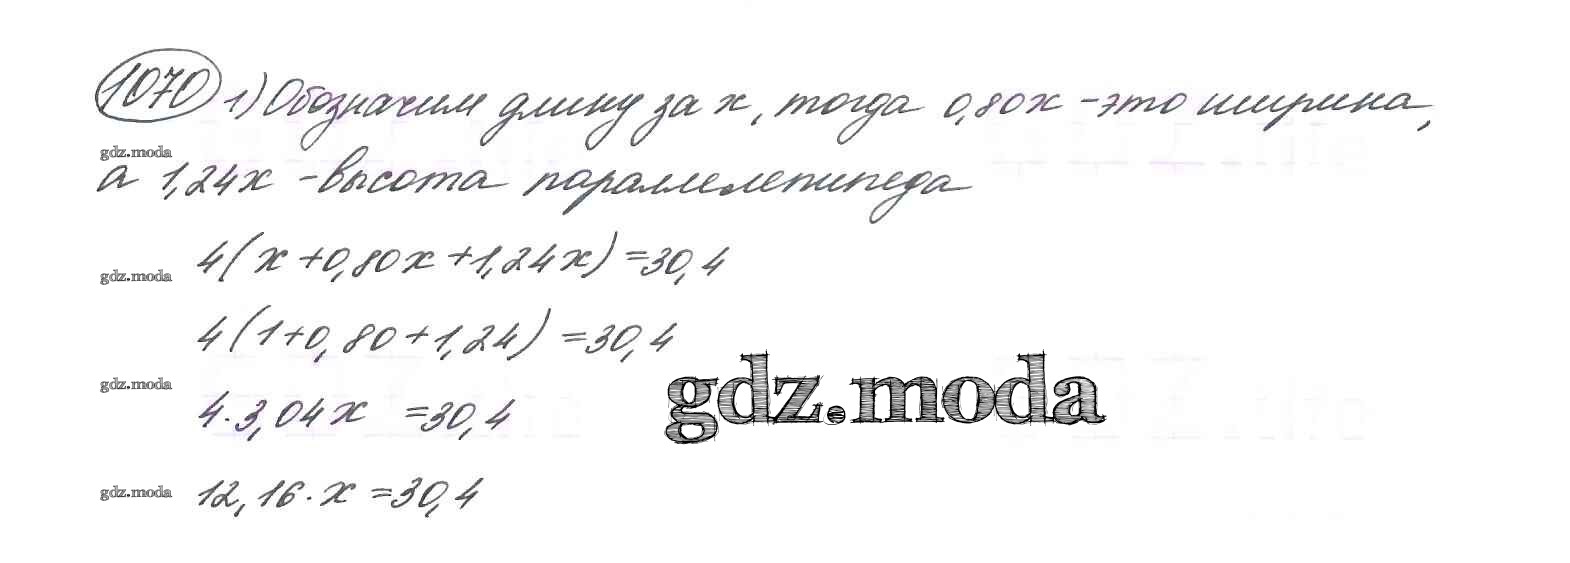 1070 1) Обозначим длину за x, тогда 0,80x - это ширина,
gdz.moda
а 1,24x - высота параллелепипеда
gdz.moda
4(x+0,80x+1,24x)=30,4
4(1+0,80+1,24)=30,4
gdz.moda
gdz.moda
4·3,04x =30,4
gdz.moda
12,16·x =30,4